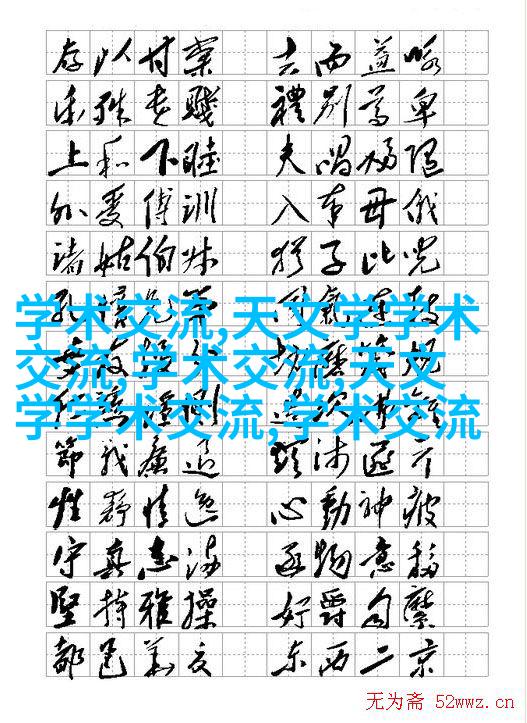 存以甘棠 去而益咏
樂殊貴賤 禮別尊卑
上和下睦 夫唱婦隨
外受傅訓 入奉母儀
諸姑伯叔 猶子比兒
学术交流,天文学学术
交流,学术交流,天文
学学术交流,学术交流
節義廉退 顛沛匪虧
性靜情逸 心動神疲
守真志滿 逐物意移
堅持雅操 好爵自縻
都邑華夏 东西二京
无为斋 52wwz.cn